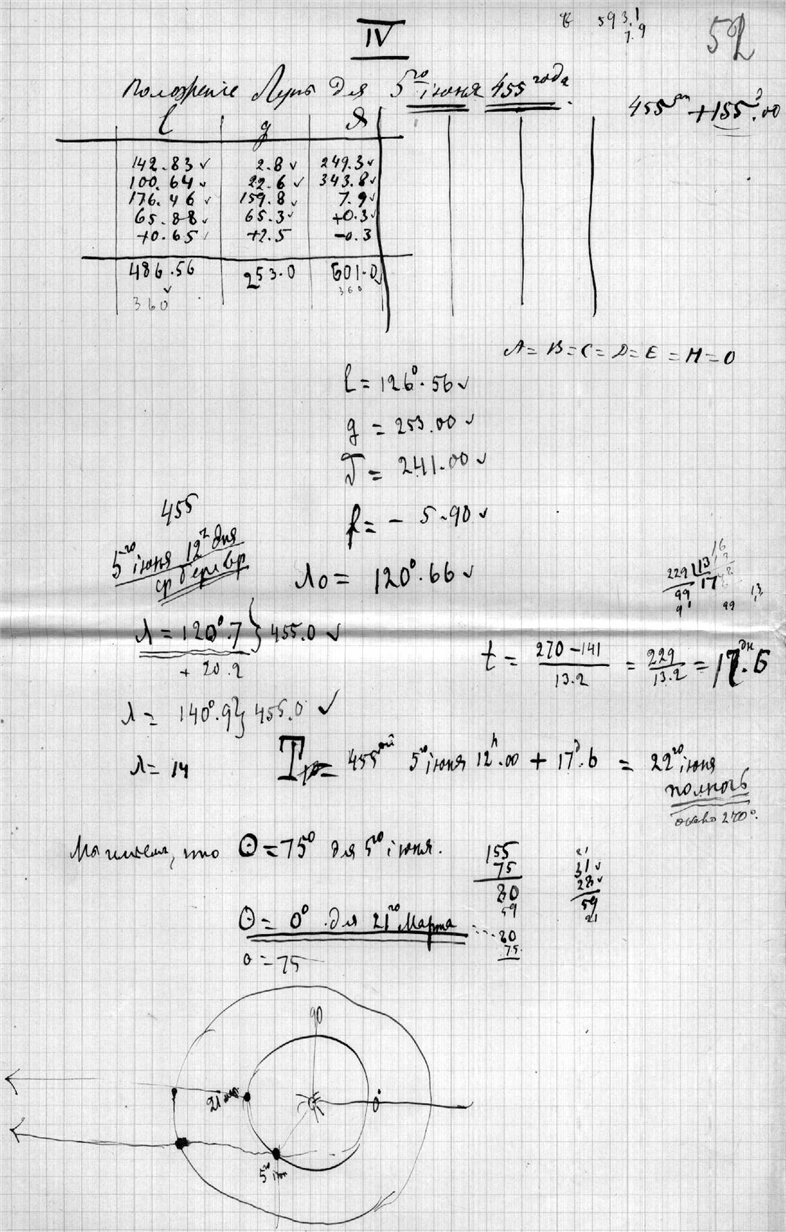 52
IV
593.1
7.9
Положеніе Луны для 5го іюня 455 года.
455 +155.00
l g ☊
142.83 2.8 249.3
100.64 22.6 343.8
176.46 159.8 7.9
65.88 65.3 +0.3
+0.65 +2.5 -0.3
486.56 253.0 601.0
360 360
A=B=C=D=E=H=0
l = 126°.56
g = 253.00
= 241.00
f = - 5.90
455
5го іюня 12ч дня
λ0 = 120°.66
229 13
99 17
91 99 13
λ = 120°.7} 455.0
+ 20.2
t = 270-141 / 13.2 = 229 / 13.2 = 17дн.6
λ = 140°.9} 455.0
λ = 14
T = 455 5го іюня 12h.00 + 17д.6 = 22го іюня
полночь
около 270°.
Мы имеем, что ☉=75° для 5го іюня.
155
75
80
59
31
28
59
21
☉ = 0° для 21го Марта
80
75
☉ = 75
90
21 мар
0°
5го іюн